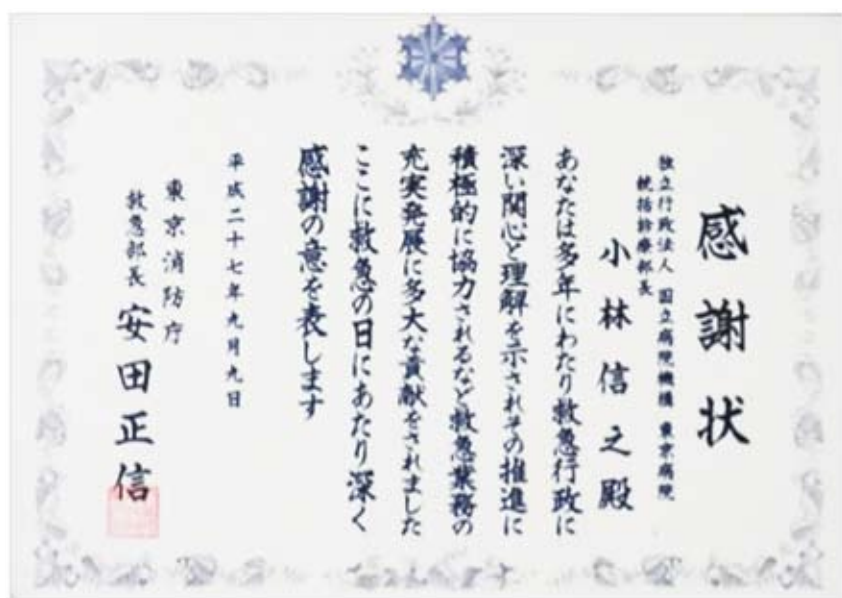 感謝状
独立行政法人 国立病院機構 東京病院
統括診療部長
小林信之殿
あなたは多年にわたり救急行政に
深い関心と理解を示されその推進に
積極的に協力されるなど救急業務の
充実発展に多大な貢献をされました
ここに救急の日にあたり深く
感謝の意を表します
平成二十七年九月九日
東京消防庁
救急部長 安田正信